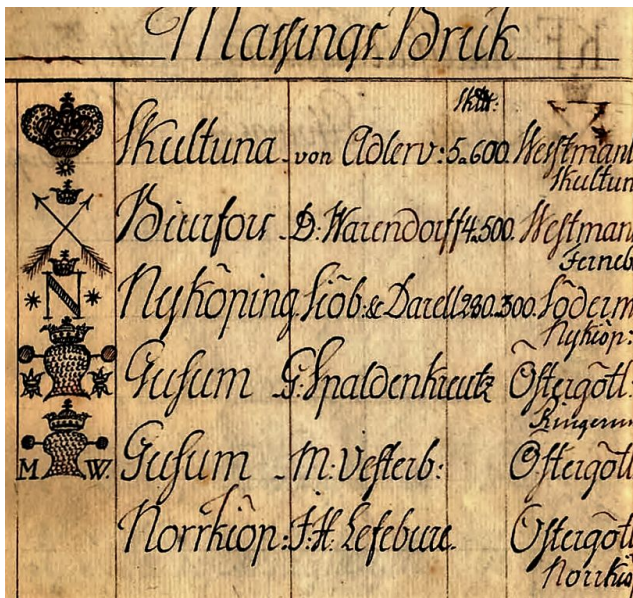 Massings Bruk
Skultuna von Adlerv: 5.600. Westmanl
Skultun
Biurfors D: Warendorff 4.500. Westman
Ferneb
N
Nyköping Siöb: & Darell 230.300. Söderm
Nykiöp:
Gusum G. Spaldenkreutz Östergötl.
Ringerum
M W. Gusum M: Vesterb: Östergötl
Norrkiöp: J. H. Lefebure. Östergötl
Norrkiö